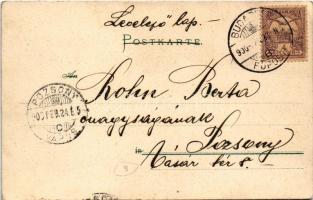 Levelező lap.-
POSTKARTE.
An
Kohn Berta
őnagyságának
in Pozsony
Vásár tér 8.
POZSONY
BUDAPEST